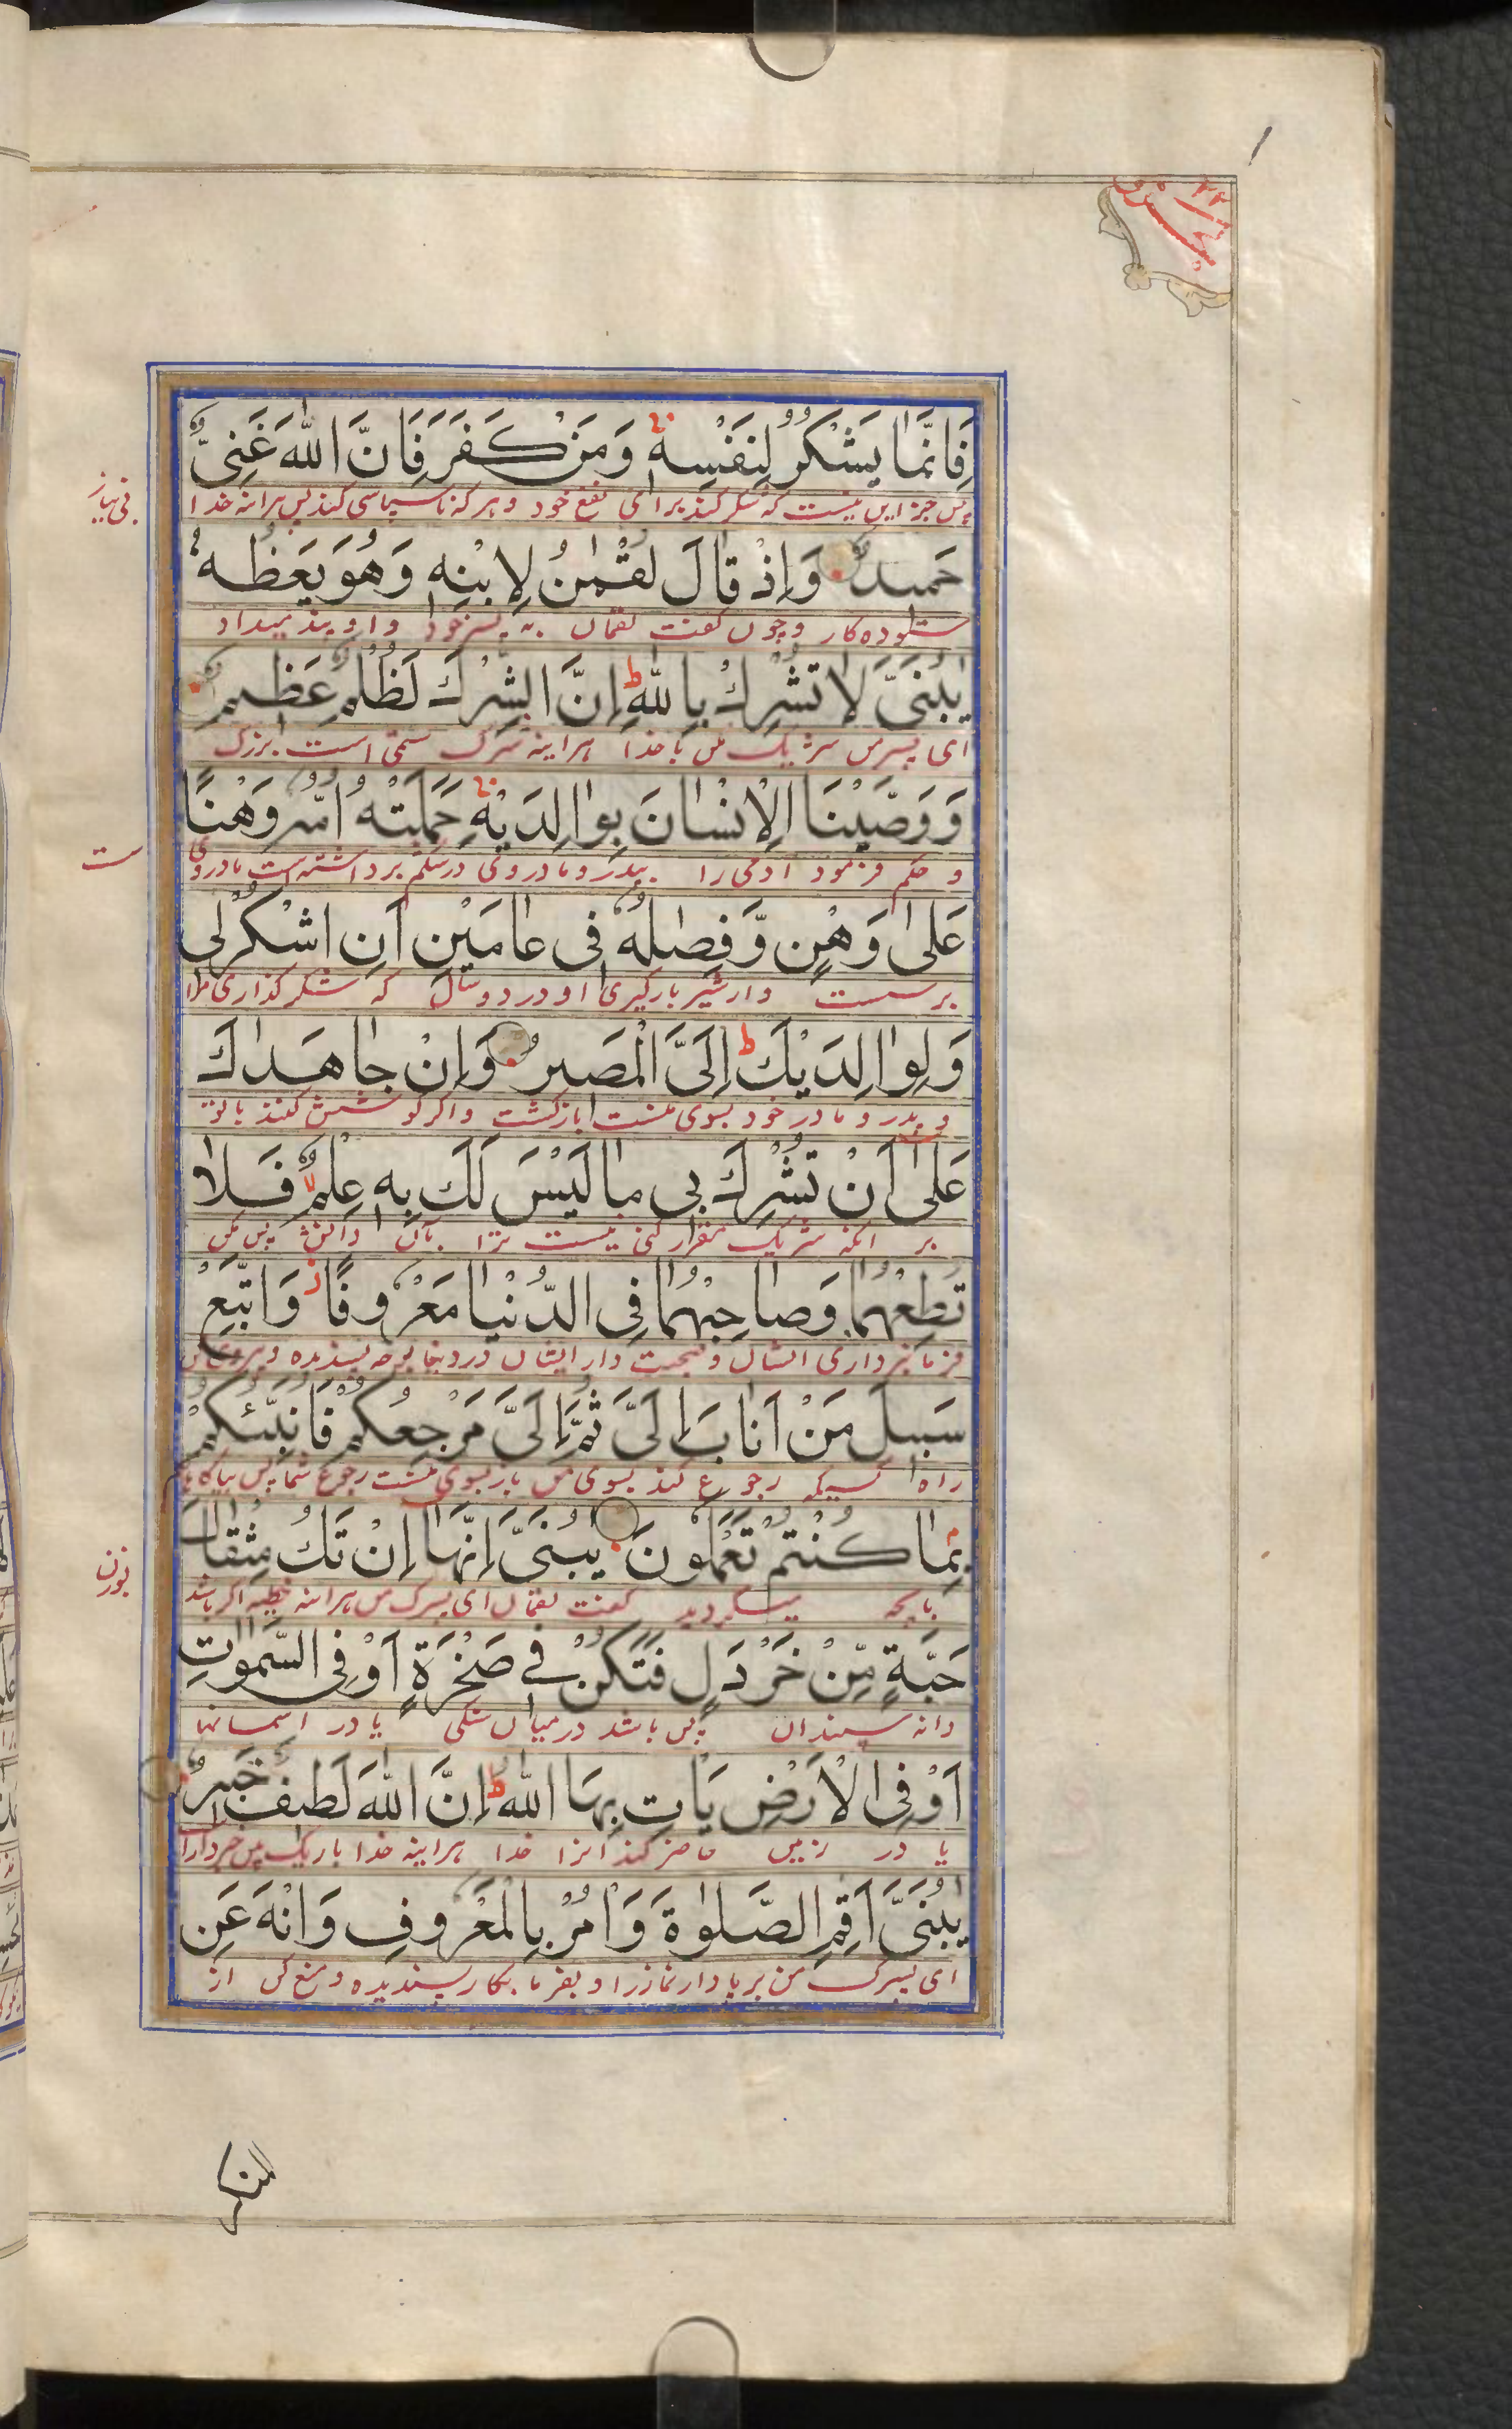 فَاِنَّمَا يَشْكُرُ لِنَفْسِهٖ وَمَنْ كَفَرَ فَاِنَّ اللّٰهَ غَنِىٌّ
پس جز این نیست که شکر کند برای نفع خود و هر که ناسپاسی کند پس هراینه خدا
بی نیاز
حَمِيْدٌ وَاِذْ قَالَ لُقْمٰنُ لِابْنِهٖ وَهُوَ يَعِظُهٗ
ستوده کار و چون گفت لقمان به پسر خود و او پند میداد
يٰبُنَىَّ لَا تُشْرِكْ بِاللّٰهِ ط اِنَّ الشِّرْكَ لَظُلْمٌ عَظِيْمٌ
ای پسر من شریک مکن با خدا هراینه شرک ستمی است بزرگ
وَوَصَّيْنَا الْاِنْسَانَ بِوَالِدَيْهِ حَمَلَتْهُ اُمُّهٗ وَهْنًا
و حکم فرمود ادمی را بپدر و مادر وی در شکم برداشته است مادر وی
ست
عَلٰى وَهْنٍ وَّفِصٰلُهٗ فِى عَامَيْنِ اَنِ اشْكُرْ لِى
بر سست و از شیر بازگیری او در دو سال که شکر گذاری مرا
وَلِوَالِدَيْكَ ط اِلَىَّ الْمَصِيْرُ وَاِنْ جَاهَدٰكَ
و پدر و مادر خود بسوی منست بازگشت و اگر کوشش کنند با تو
عَلٰى اَنْ تُشْرِكَ بِى مَا لَيْسَ لَكَ بِهٖ عِلْمٌ لا فَلَا
بر انکه شریک مقرر کنی نیست ترا بان دانش پس مکن
تُطِعْهُمَا وَصَاحِبْهُمَا فِى الدُّنْيَا مَعْرُوْفًا ز وَاتَّبِعْ
فرمانبرداری ایشان و صحبت دار ایشان در دنیا بوجه پسندیده و پیروی کن
سَبِيْلَ مَنْ اَنَابَ اِلَىَّ ثُمَّ اِلَىَّ مَرْجِعُكُمْ فَاُنَبِّئُكُمْ
راه کسیکه رجوع کند بسوی من باز بسوی منست رجوع شما پس
بِمَا كُنْتُمْ تَعْمَلُوْنَ يٰبُنَىَّ اِنَّهَا اِنْ تَكُ مِثْقَالَ
بانچه میکردید گفت لقمان ای پسرک من هراینه خطیه اگر باشد
بوزن
حَبَّةٍ مِّنْ خَرْدَلٍ فَتَكُنْ فِى صَخْرَةٍ اَوْ فِى السَّمٰوٰتِ
دانه سپندان پس باشد در میان سنگی یا در اسمانها
اَوْ فِى الْاَرْضِ يَاْتِ بِهَا اللّٰهُ ط اِنَّ اللّٰهَ لَطِيْفٌ خَبِيْرٌ
یا در زمین حاضر کند انرا خدا هراینه خدا باریک بین خبردار
يٰبُنَىَّ اَقِمِ الصَّلٰوةَ وَاْمُرْ بِالْمَعْرُوْفِ وَانْهَ عَنِ
ای پسرک من برپا دار نماز را و بفرما بکار پسندیده و منع کن از
المنكر